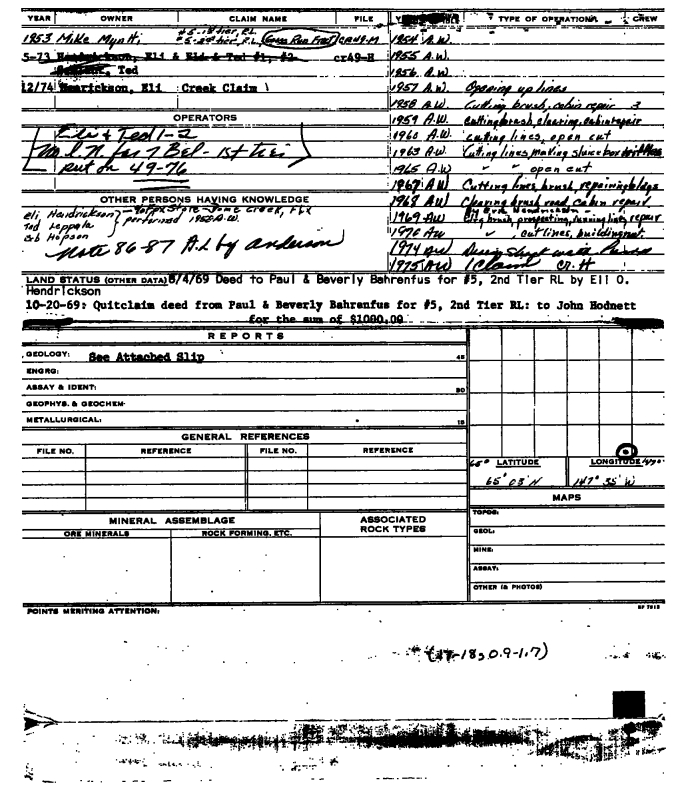 YEAR OWNER CLAIM NAME FILE TYPE OF OPERATION CREW
#5-1st tier, RL
1953 Mike Myntti #5-2nd tier, RL CR49-M 1954 A.W.
5-73 Hendrickson, Eli & Eli & Ted #1, #2 cr49-H 1955 A.W.
Ted 1956 A.W.
12/74 Henrickson, Eli Creek Claim 1 1957 A.W. Opening up lines
1958 A.W. Cutting brush, cabin repair 3
OPERATORS 1959 A.W. cutting brush, clearing, cabin repair
Eli & Ted 1-2 1960 A.W. cutting lines, open cut
M.L.N. for 7 Bel - 1st tier 1963 A.W. Cutting lines, making sluice box
put on 49-76 1965 A.W. " " open cut
1967 A.W. Cutting lines, brush, repairing bldgs
OTHER PERSONS HAVING KNOWLEDGE 1968 A.W. Clearing brush road, cabin repair
Eli Hendrickson Store - Dome Creek, Fbx 1969 AW brush, prospecting, running lines, repair
Ted Leppala performed 1952 A.W. 1970 A.W. " , cut lines, building
Hopson
Note 86-87 A.L by anderson 1974 AW
1975 AW 1 Claim Cr. H
LAND STATUS (OTHER DATA) 8/4/69 Deed to Paul & Beverly Bahrenfus for #5, 2nd Tier RL by Eli O.
Hendrickson
10-20-69: Quitclaim deed from Paul & Beverly Bahrenfus for #5, 2nd Tier RL: to John Hodnett
for the sum of $1000.00
REPORTS
GEOLOGY: See Attached Slip 45
ENGRG:
ASSAY & IDENT: 30
GEOPHYS. & GEOCHEM
METALLURGICAL: 15
GENERAL REFERENCES
FILE NO. REFERENCE FILE NO. REFERENCE
65° LATITUDE LONGITUDE 147°
65° 03' N 147° 35' W
MAPS
MINERAL ASSEMBLAGE ASSOCIATED ROCK TYPES
ORE MINERALS ROCK FORMING, ETC.
TOPOG:
GEOL:
MINE:
ASSAY:
OTHER (& PHOTOS)
POINTS MERITING ATTENTION:
(17-18, 0.9-1.7)